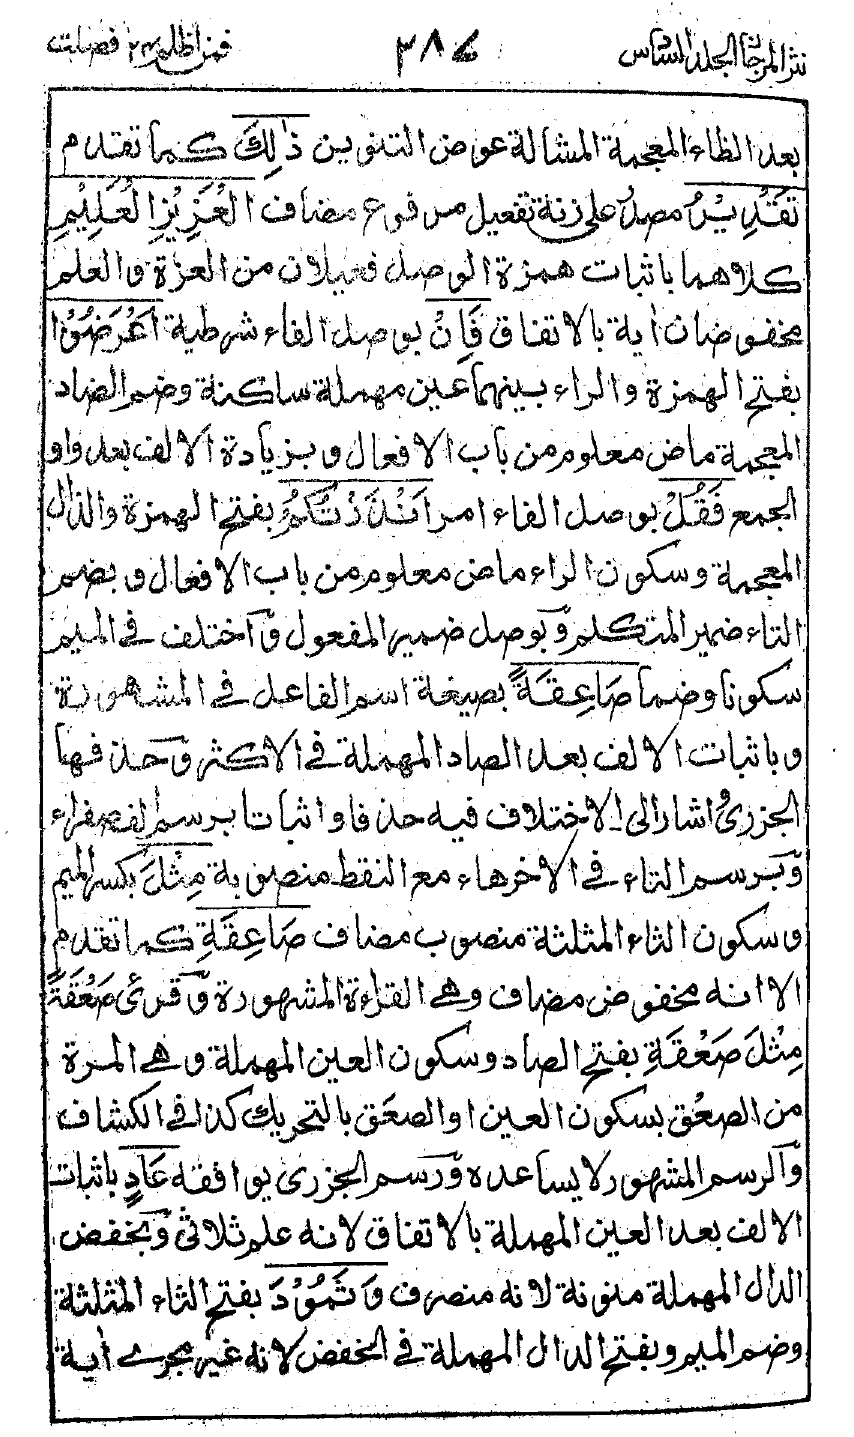 نثر المرجان الجلد السادس
٣٨٧
فمن اظلم ٢٤ فصلت
بعد الظاء المعجمة المشالة عوض التنوين ذٰلِكَ كما تقدم
تَقْدِيْرُ مصدر على زنة تفعيل مرفوع مضاف الْعَزِيْزِ الْعَلِيْمِ
كلاهما باثبات همزة الوصل فعيلان من العزة والعلم
مخفوضان اٰية بالاتفاق فَاِنْ بوصل الفاء شرطية اَعْرَضُوْا
بفتح الهمزة والراء بينهما عين مهملة ساكنة وضم الضاد
المعجمة ماض معلوم من باب الافعال وبزيادة الالف بعد واو
الجمع فَقُلْ بوصل الفاء امر اَنْذَرْتُكُمْ بفتح الهمزة والذال
المعجمة وسكون الراء ماض معلوم من باب الافعال وبضم
التاء ضمير المتكلم وبوصل ضمير المفعول واختلف في الميم
سكونا وضما صَاعِقَةً بصيغة اسم الفاعل في المشهورة
وباثبات الالف بعد الصاد المهملة في الاكثر وحذفها
الجزرى واشار الى الاختلاف فيه حذفا واثباتا برسم الف صفراء
وبرسم التاء في الاخر هاء مع النقط منصوبة مِثْلَ بكسر الميم
وسكون الثاء المثلثة منصوب مضاف صَاعِقَةِ كما تقدم
الا انه مخفوض مضاف وهي القراءة المشهورة وقرئ صَعْقَةً
مِثْلَ صَعْقَةِ بفتح الصاد وسكون العين المهملة وهي المرة
من الصعْق بسكون العين او الصعَق بالتحريك كذا في الكشاف
والرسم المشهور لا يساعده ورسم الجزرى يوافقه عَادٍ باثبات
الالف بعد العين المهملة بالاتفاق لانه علم ثلاثي وبخفض
الدال المهملة منونة لانه منصرف وَثَمُوْدَ بفتح الثاء المثلثة
وضم الميم وبفتح الدال المهملة في الخفض لانه غير مجرى اٰية